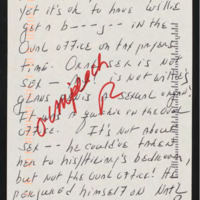 yet it's ok to have willie
get a b---j-- in the
oval office on tax payers
time. Oral sex is not
sex - is not willie's
glans a sexual organ?
quickie in the oval
office. It's not about
sex - he could've taken
her to his/hillary's bedroom,
but not the oval office! He
perjured himself on natl